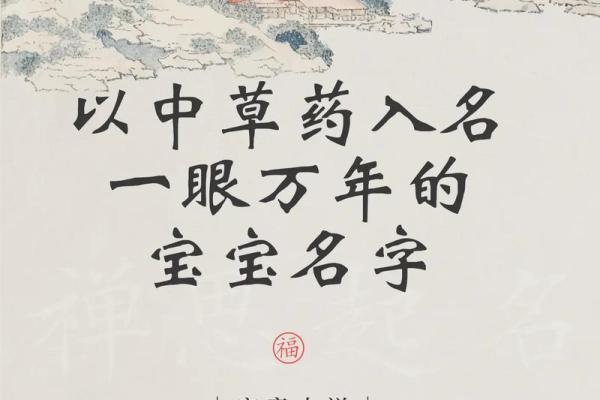 以中草药入名
一眼万年的
宝宝名字
禅思起名
福